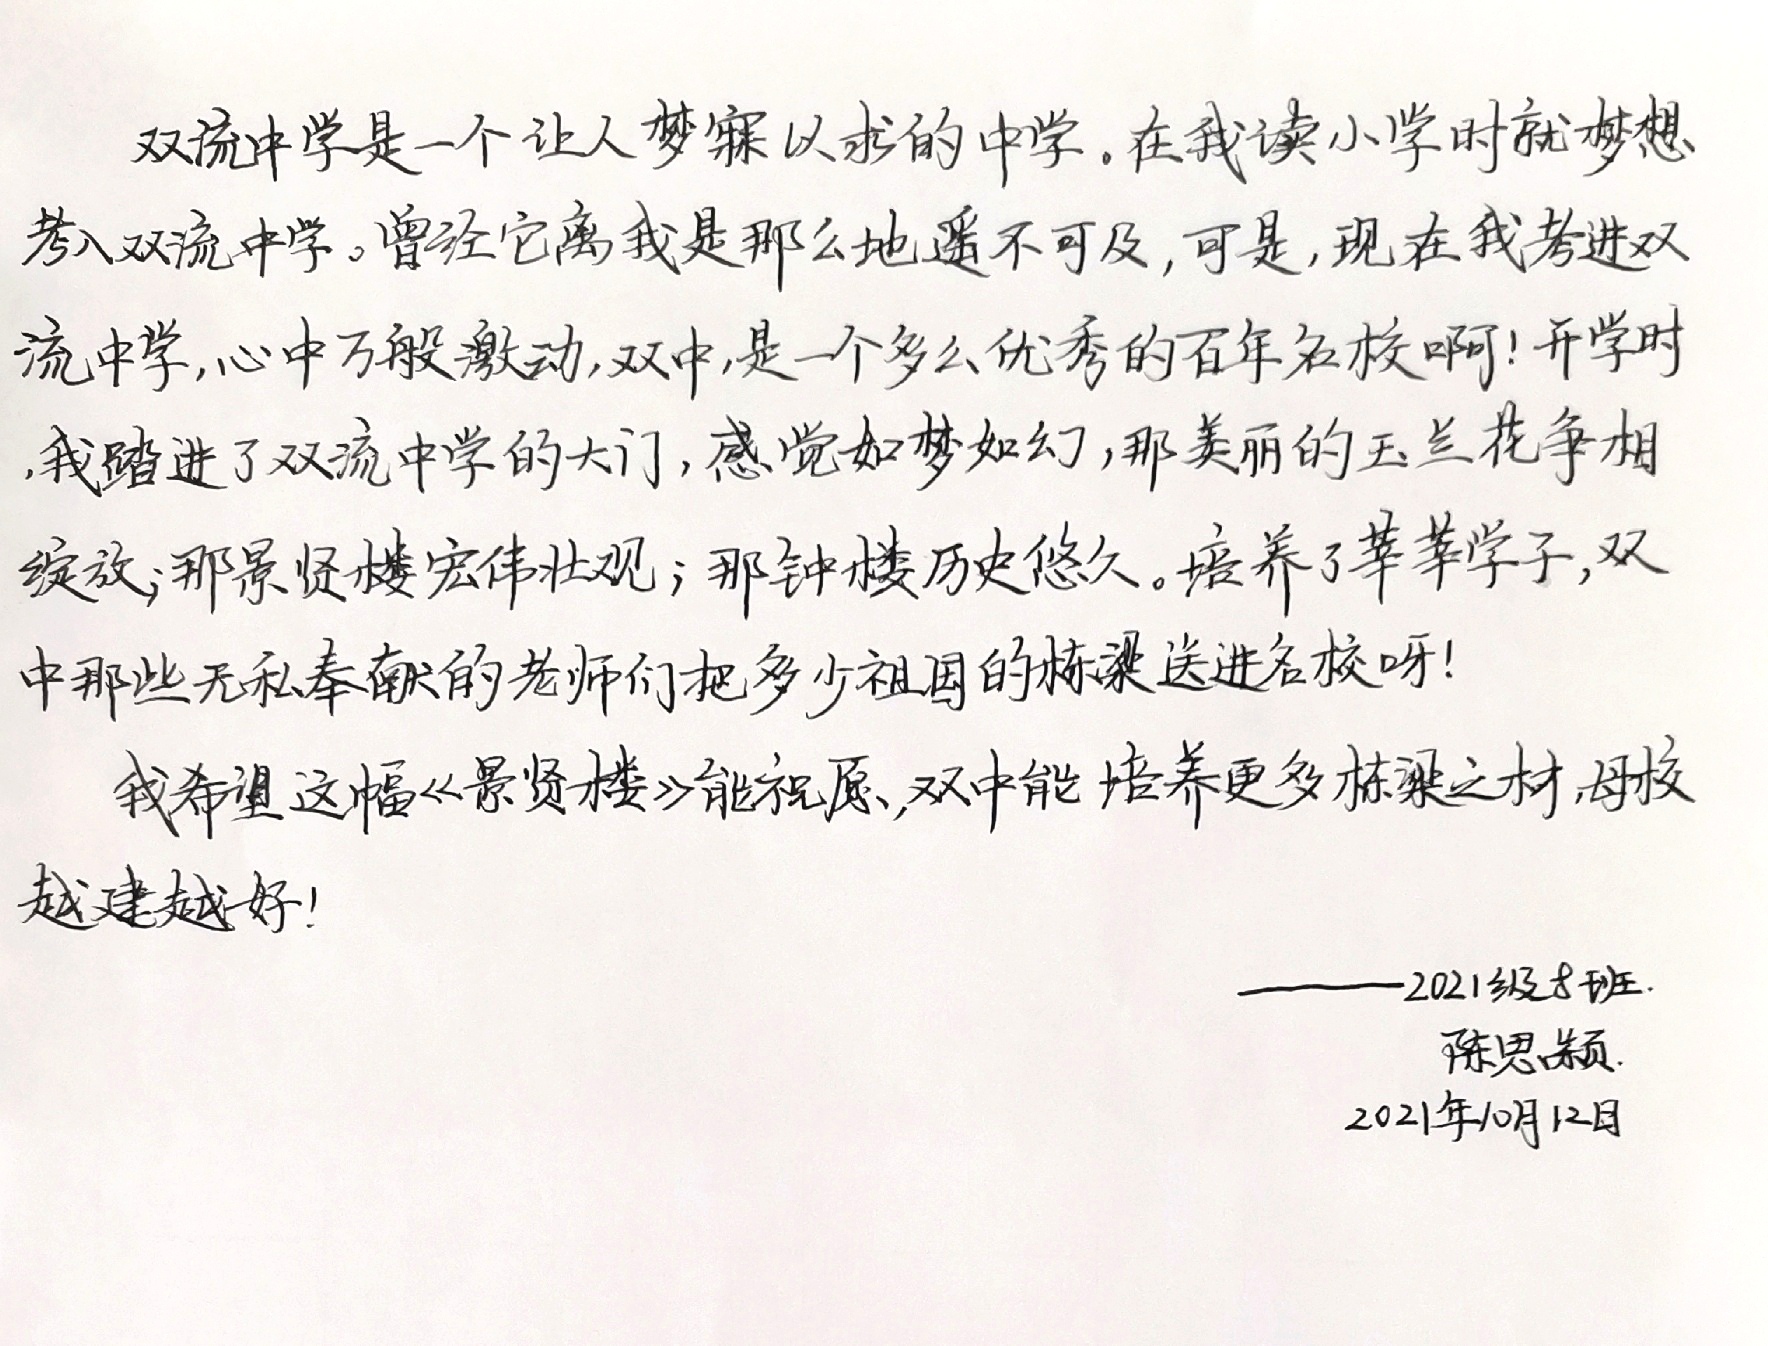 双流中学是一个让人梦寐以求的中学。在我读小学时就梦想
考入双流中学。曾经它离我是那么地遥不可及,可是,现在我考进双
流中学,心中万般激动,双中,是一个多么优秀的百年名校啊!开学时
,我踏进了双流中学的大门,感觉如梦如幻,那美丽的玉兰花争相
绽放;那景贤楼宏伟壮观;那钟楼历史悠久。培养了莘莘学子,双
中那些无私奉献的老师们把多少祖国的栋梁送进名校呀!
我希望这幅《景贤楼》能祝愿,双中能培养更多栋梁之材,母校
越建越好!
——2021级8班.
陈思颖.
2021年10月12日